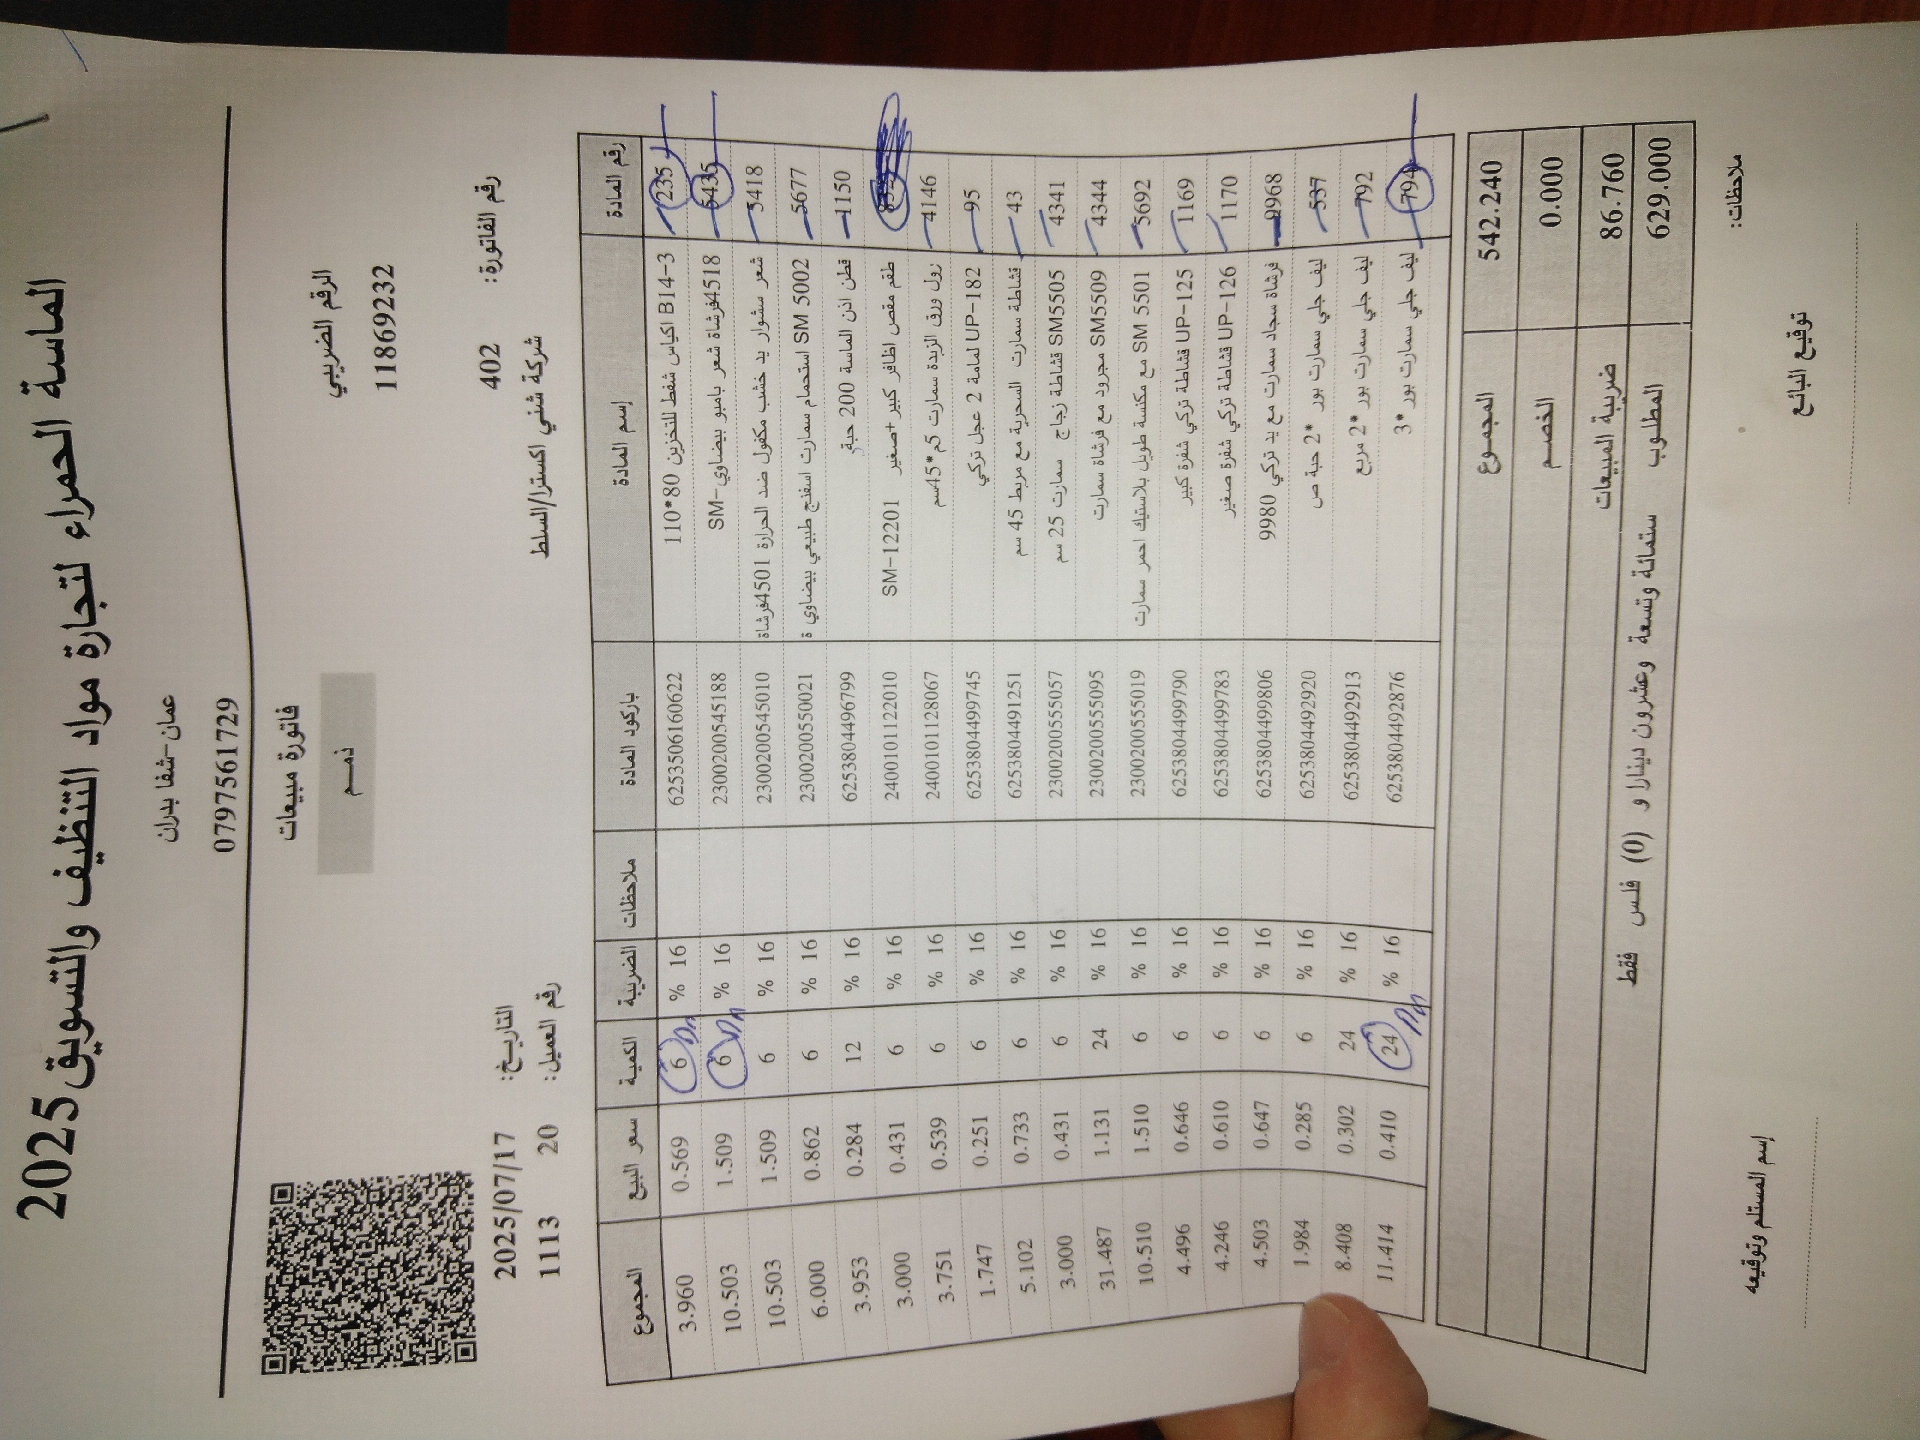 الماسة الحمراء لتجارة مواد التنظيف والتسويق2025
عمان-شفا بدران
0797561729
فاتورة مبيعات
الرقم الضريبي
ذمم
11869232
رقم الفاتورة: 402
التاريخ: 2025/07/17
شركة شني اكسترا/السلط
رقم العميل: 20 1113
رقم المادة إسم المادة باركود المادة ملاحظات الضريبة الكمية سعر البيع المجموع
2235 اكياس شفط للتخزين 80*110 B14-3 6253506160622 % 16 6 0.569 3.960
5435 4518فرشاة شعر بامبو بيضاوي-SM 2300200545188 % 16 6 1.509 10.503
5418 شعر سشوار يد خشب مكفول ضد الحرارة 4501فرشاة 2300200545010 % 16 6 1.509 10.503
5677 SM 5002 استحمام سمارت اسفنج طبيعي بيضاوي ة 2300200550021 % 16 6 0.862 6.000
1150 قطن اذن الماسة 200 حبة 6253804496799 % 16 12 0.284 3.953
طقم مقص اظافر كبير +صغير SM-12201 2400101122010 % 16 6 0.431 3.000
4146 رول ورق الزبدة سمارت 5م*45سم 2400101128067 % 16 6 0.539 3.751
95 UP-182 لمامة 2 عجل تركي 6253804499745 % 16 6 0.251 1.747
43 قشاطة سمارت السحرية مع مربط 45 سم 6253804491251 % 16 6 0.733 5.102
4341 SM5505 قشاطة زجاج سمارت 25 سم 2300200555057 % 16 6 0.431 3.000
4344 SM5509 مجرود مع فرشاة سمارت 2300200555095 % 16 24 1.131 31.487
5692 SM 5501 مع مكنسة طويل بلاستيك احمر سمارت 2300200555019 % 16 6 1.510 10.510
1169 UP-125 قشاطة تركي شفرة كبير 6253804499790 % 16 6 0.646 4.496
1170 UP-126 قشاطة تركي شفرة صغير 6253804499783 % 16 6 0.610 4.246
9968 فرشاة سجاد سمارت مع يد تركي 9980 6253804499806 % 16 6 0.647 4.503
537 ليف جلي سمارت بور *2 حبة ص 6253804492920 % 16 6 0.285 1.984
792 ليف جلي سمارت بور *2 مربع 6253804492913 % 16 24 0.302 8.408
794 ليف جلي سمارت بور *3 6253804492876 % 16 24 0.410 11.414
المجموع 542.240
الخصم 0.000
ضريبة المبيعات 86.760
المطلوب ستمائة وتسعة وعشرون دينارا و (0) فلس فقط 629.000
ملاحظات:
توقيع البائع
إسم المستلم وتوقيعه